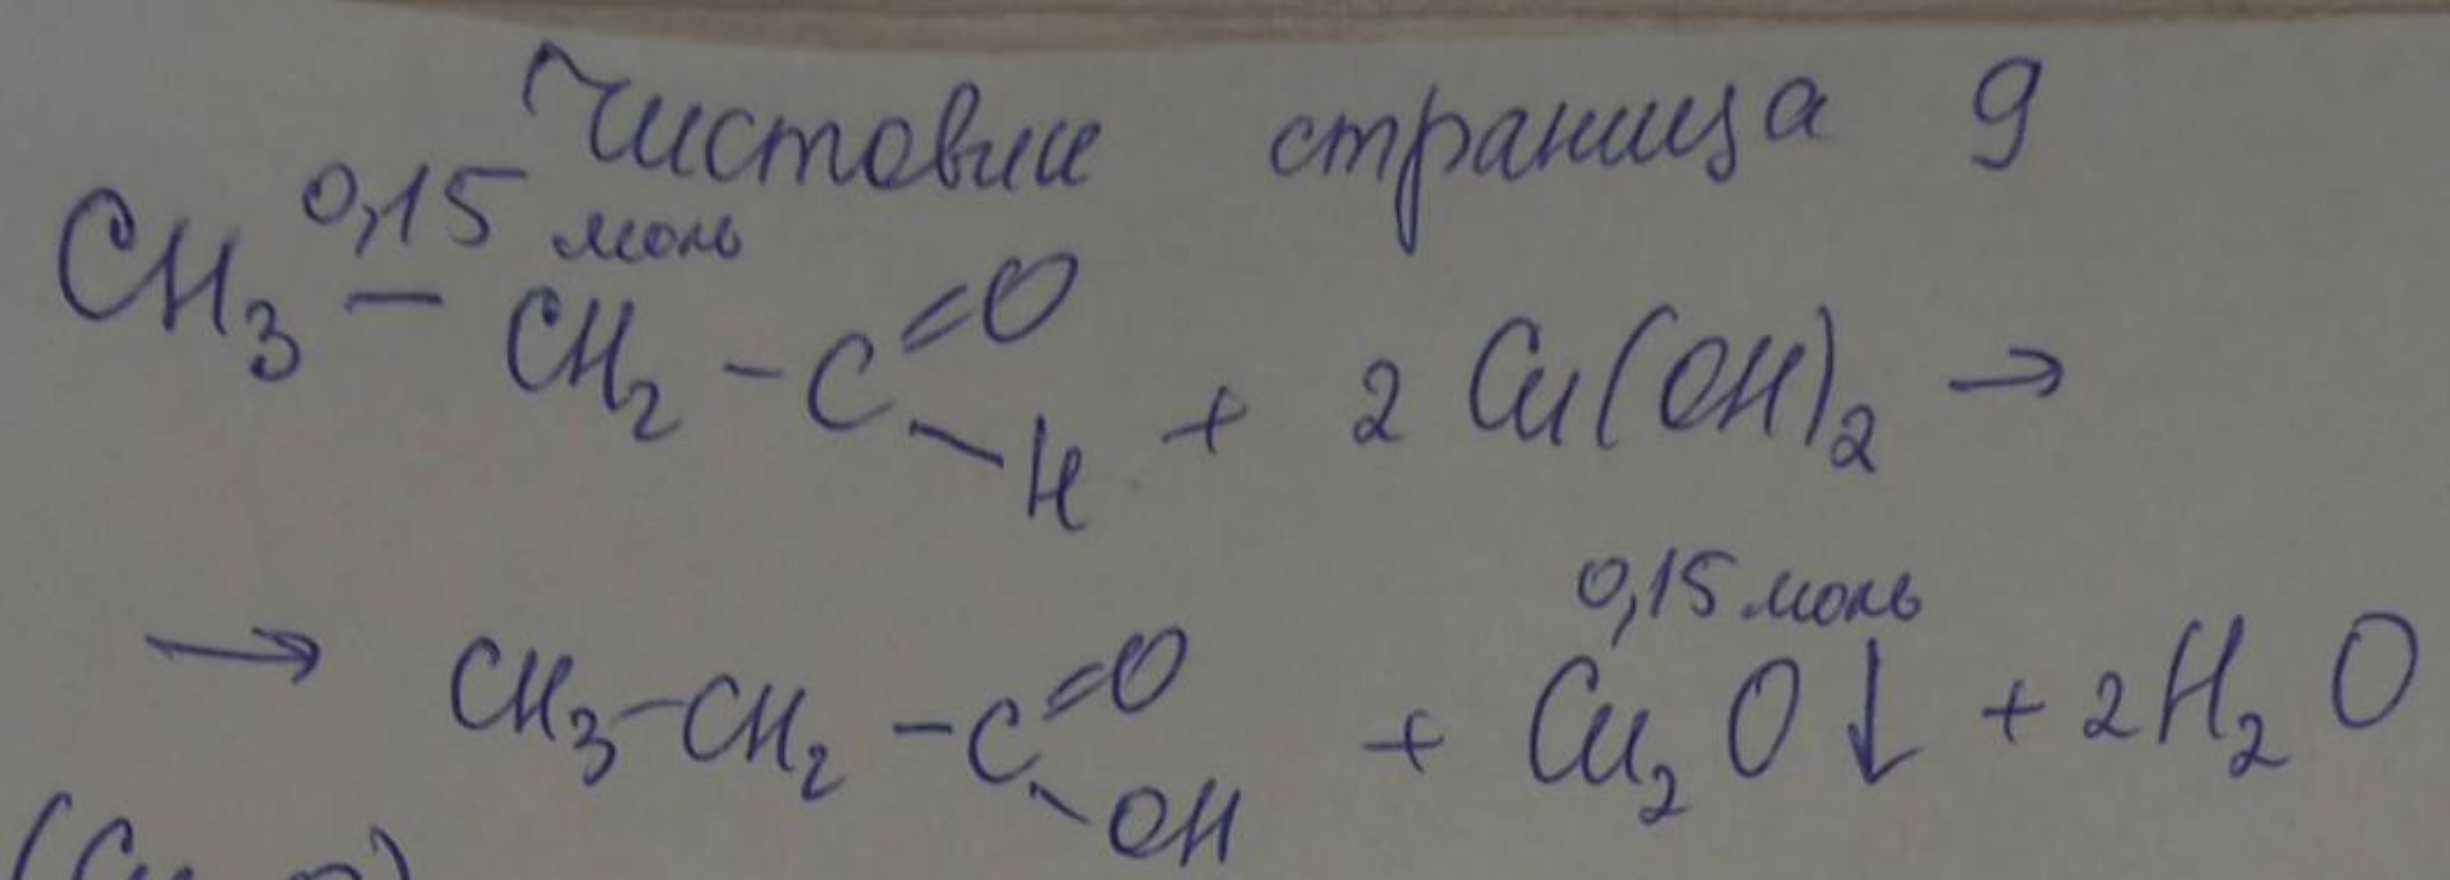 Чистовик страница 9
0,15 моль
CH₃ – CH₂ – C =O – H + 2 Cu(OH)₂ →
0,15 моль
→ CH₃–CH₂ –C =O –OH + Cu₂O↓ + 2H₂O